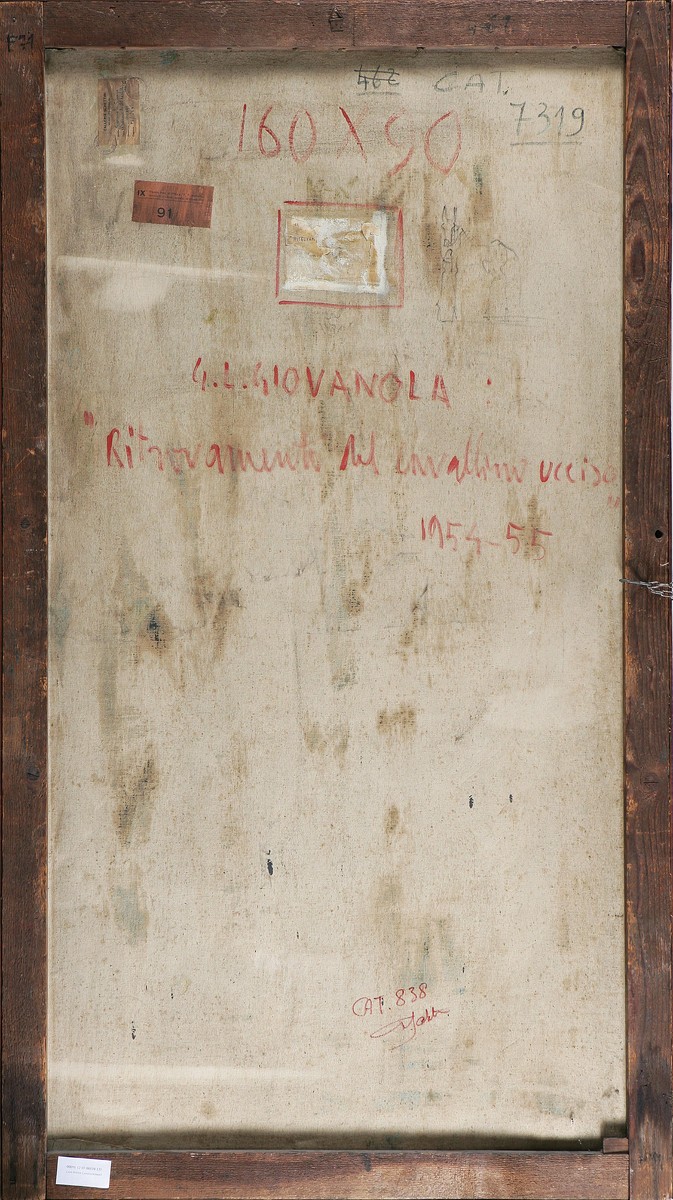 462
462 CAT.
7319
160 X 90
IX
91
G.L.GIOVANOLA :
"Ritrovamento del cavallino ucciso"
1954-55
CAT. 838